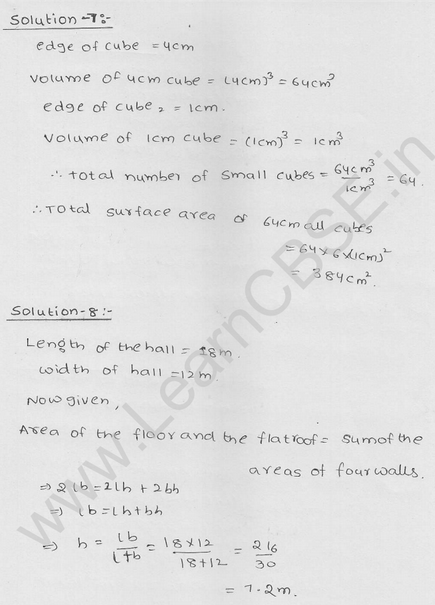 Solution-7:-
edge of cube = 4cm
Volume of 4cm cube = (4cm)³ = 64cm³
edge of cube₂ = 1cm.
Volume of 1cm cube = (1cm)³ = 1cm³
∴ total number of small cubes = 64cm³/1cm³ = 64.
∴ Total surface area of 64 small cubes
= 64 × 6 × (1cm)²
= 384cm².
Solution-8:-
Length of the hall = 18m.
width of hall = 12m.
Now given,
Area of the floor and the flat roof = sum of the
areas of four walls.
⇒ 2lb = 2lh + 2bh
⇒ lb = lh + bh
⇒ h = lb/l+b = 18×12/18+12 = 216/30
= 7.2m.
www.LearnCBSE.in